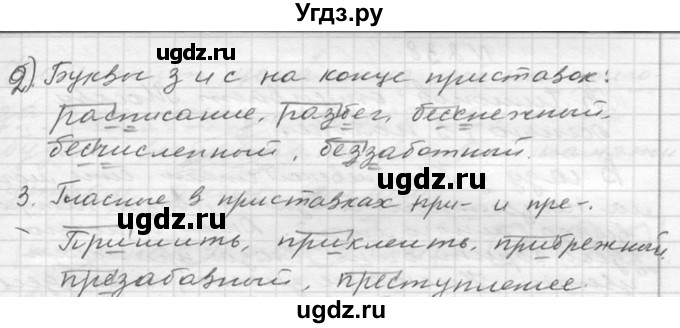 Угдз.ру
2). Буквы з и с на конце приставок:
расписание, разбег, бесснежный,
бесчисленный, беззаботный.
3. Гласные в приставках при- и пре-.
Пришить, приклеить, прибрежный,
презабавный, преступление.
ugdz.ru
ugdz.ru
ugdz.ru
ugdz.ru
ugdz.ru
ugdz.ru